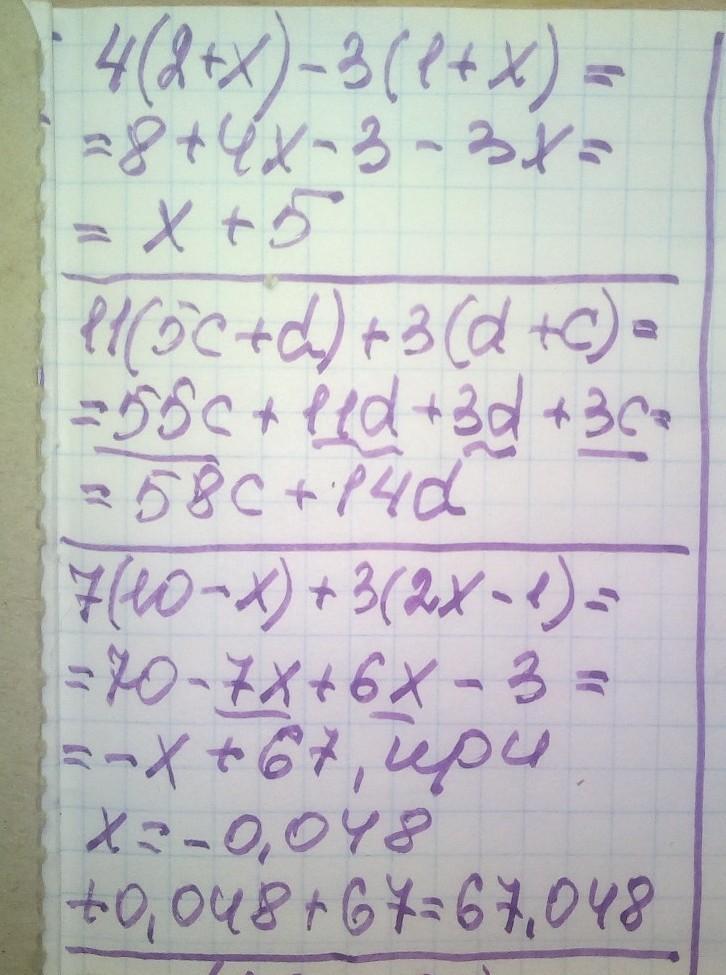 4(2+x)-3(1+x)=
=8+4x-3-3x=
= x+5
11(5c+d)+3(d+c)=
=55c+11d+3d+3c=
=58c+14d
7(10-x)+3(2x-1)=
=70-7x+6x-3=
=-x+67, при
x=-0,048
+0,048+67=67,048